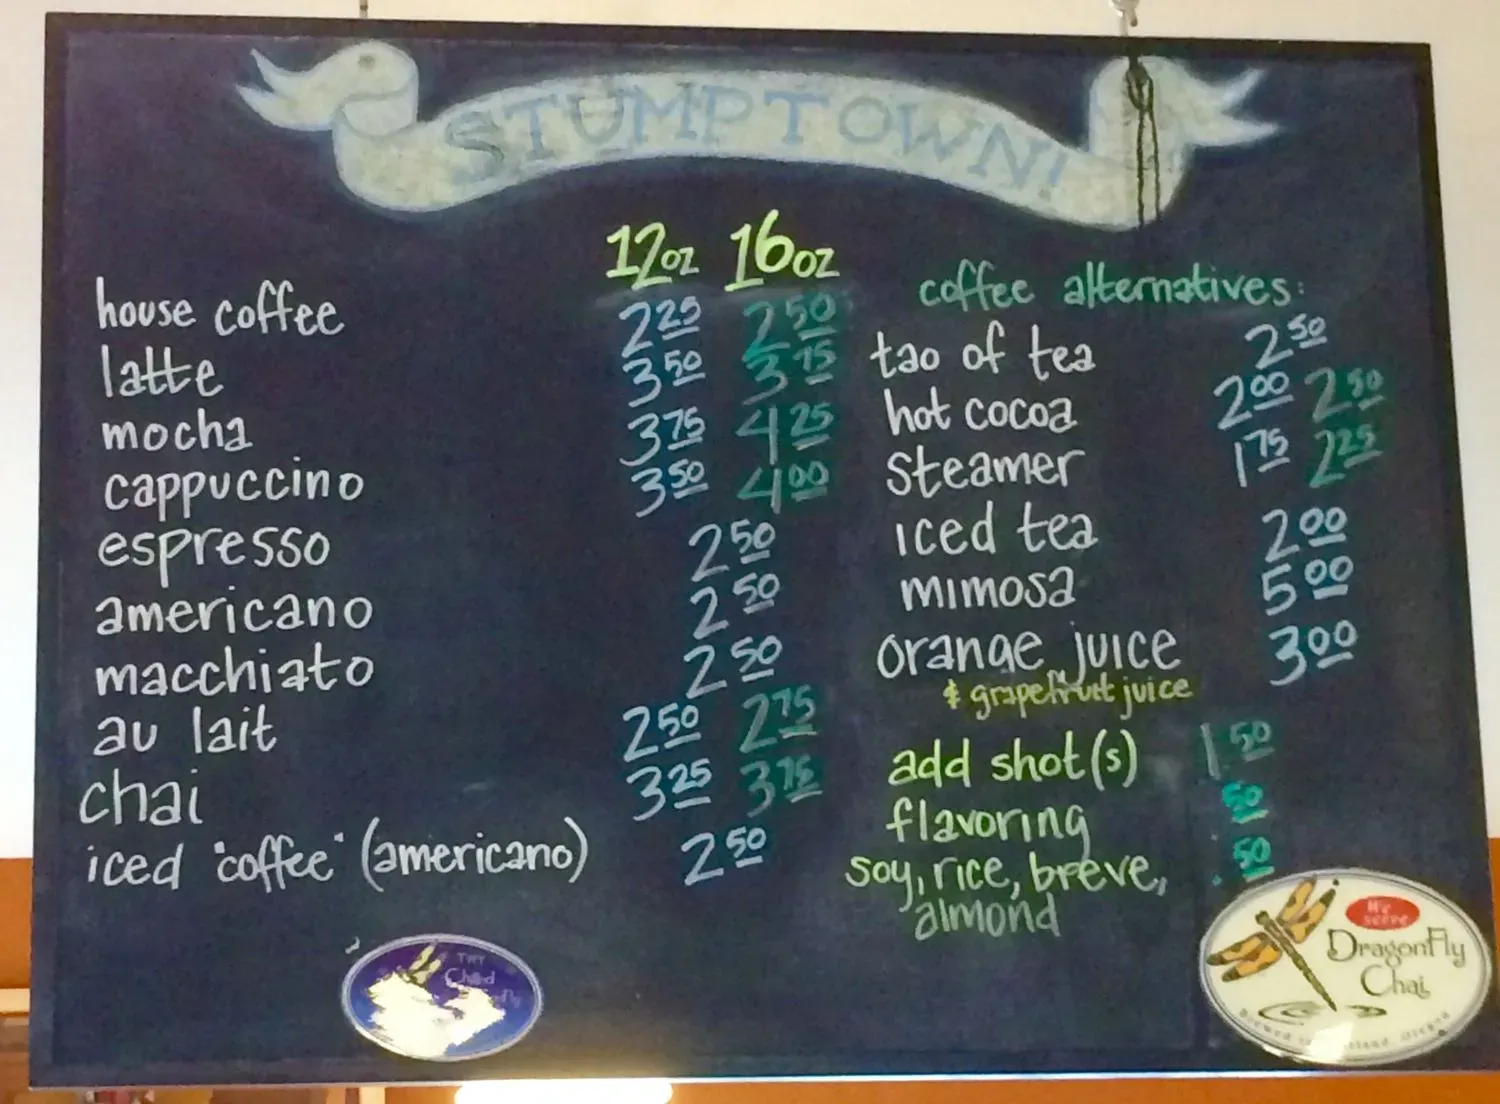 STUMPTOWN!
12oz 16oz
house coffee 2.25 2.50
latte 3.50 3.75
mocha 3.75 4.25
cappuccino 3.50 4.00
espresso 2.50
americano 2.50
macchiato 2.50
au lait 2.50 2.75
chai 3.25 3.75
iced "coffee" (americano) 2.50
coffee alternatives:
tao of tea 2.50
hot cocoa 2.00 2.50
steamer 1.75 2.25
iced tea 2.00
mimosa 5.00
orange juice 3.00
& grapefruit juice
add shot(s) 1.50
flavoring .50
soy, rice, breve, .50
almond
TRY
Chilled
We
serve
DragonFly
Chai